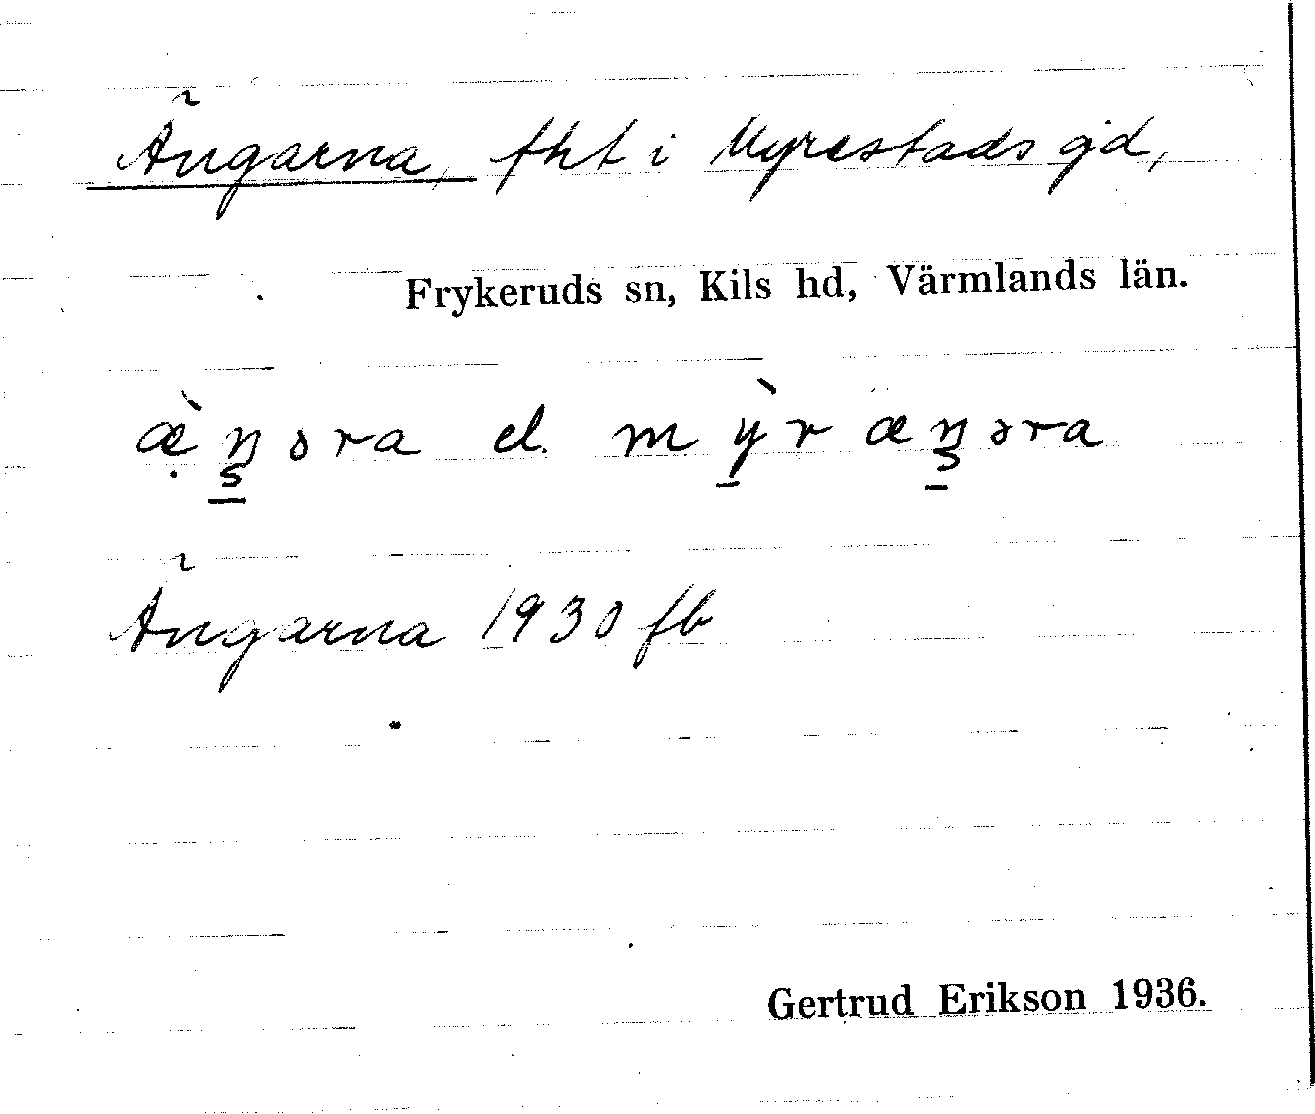 Ängarna, fht i Myrestads gd,
Frykeruds sn, Kils hd, Värmlands län.
æ̣̀ŋəra el. mỳræŋəra
Ängarna 1930 fb
Gertrud Erikson 1936.